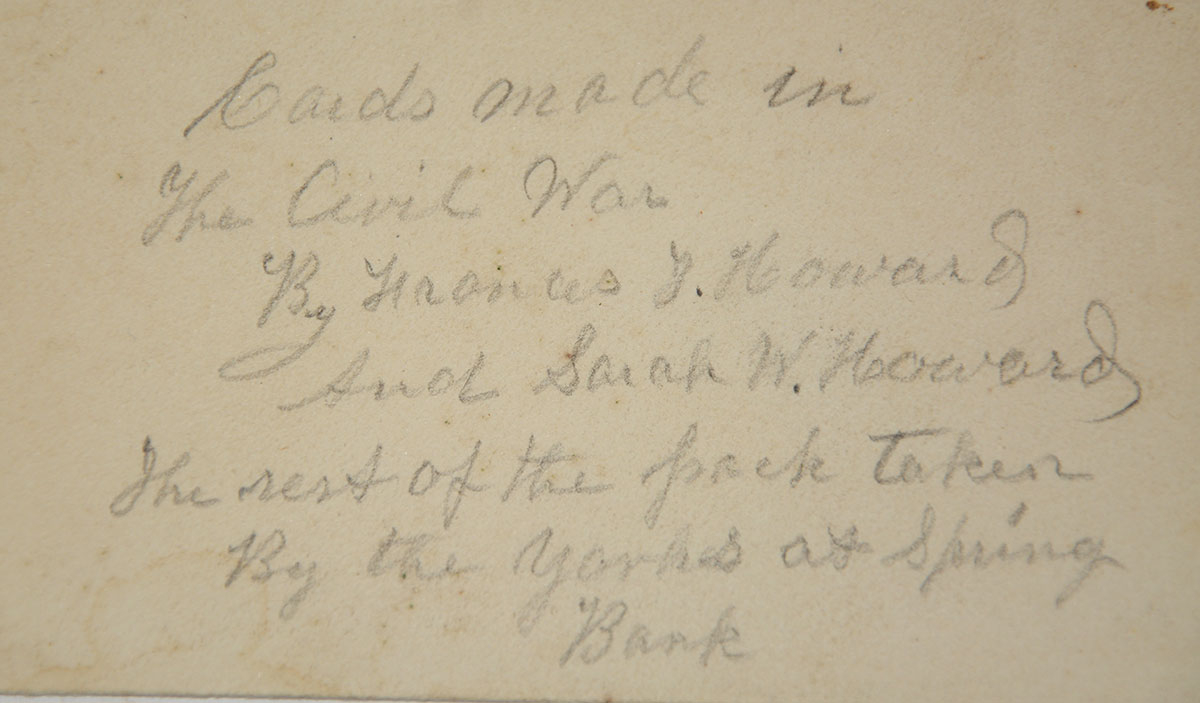 Cards made in
The Civil War
By Frances T. Howard
And Sarah W. Howard
The rest of the pack taken
By the Yanks at Spring
Bank